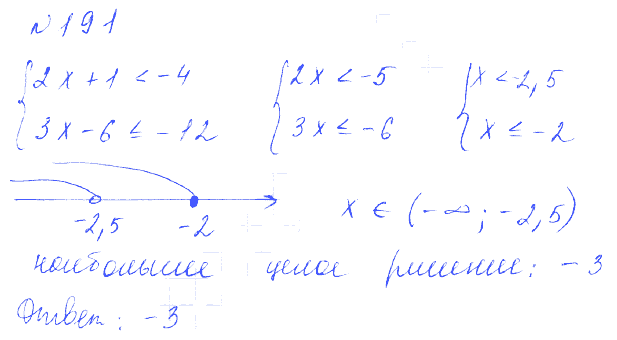 №191
{2x+1<-4 {2x<-5 {x<-2,5
{3x-6≤-12 {3x≤-6 {x≤-2
-2,5 -2 x ∈ (-∞; -2,5)
наибольшее целое решение: -3
Ответ: -3